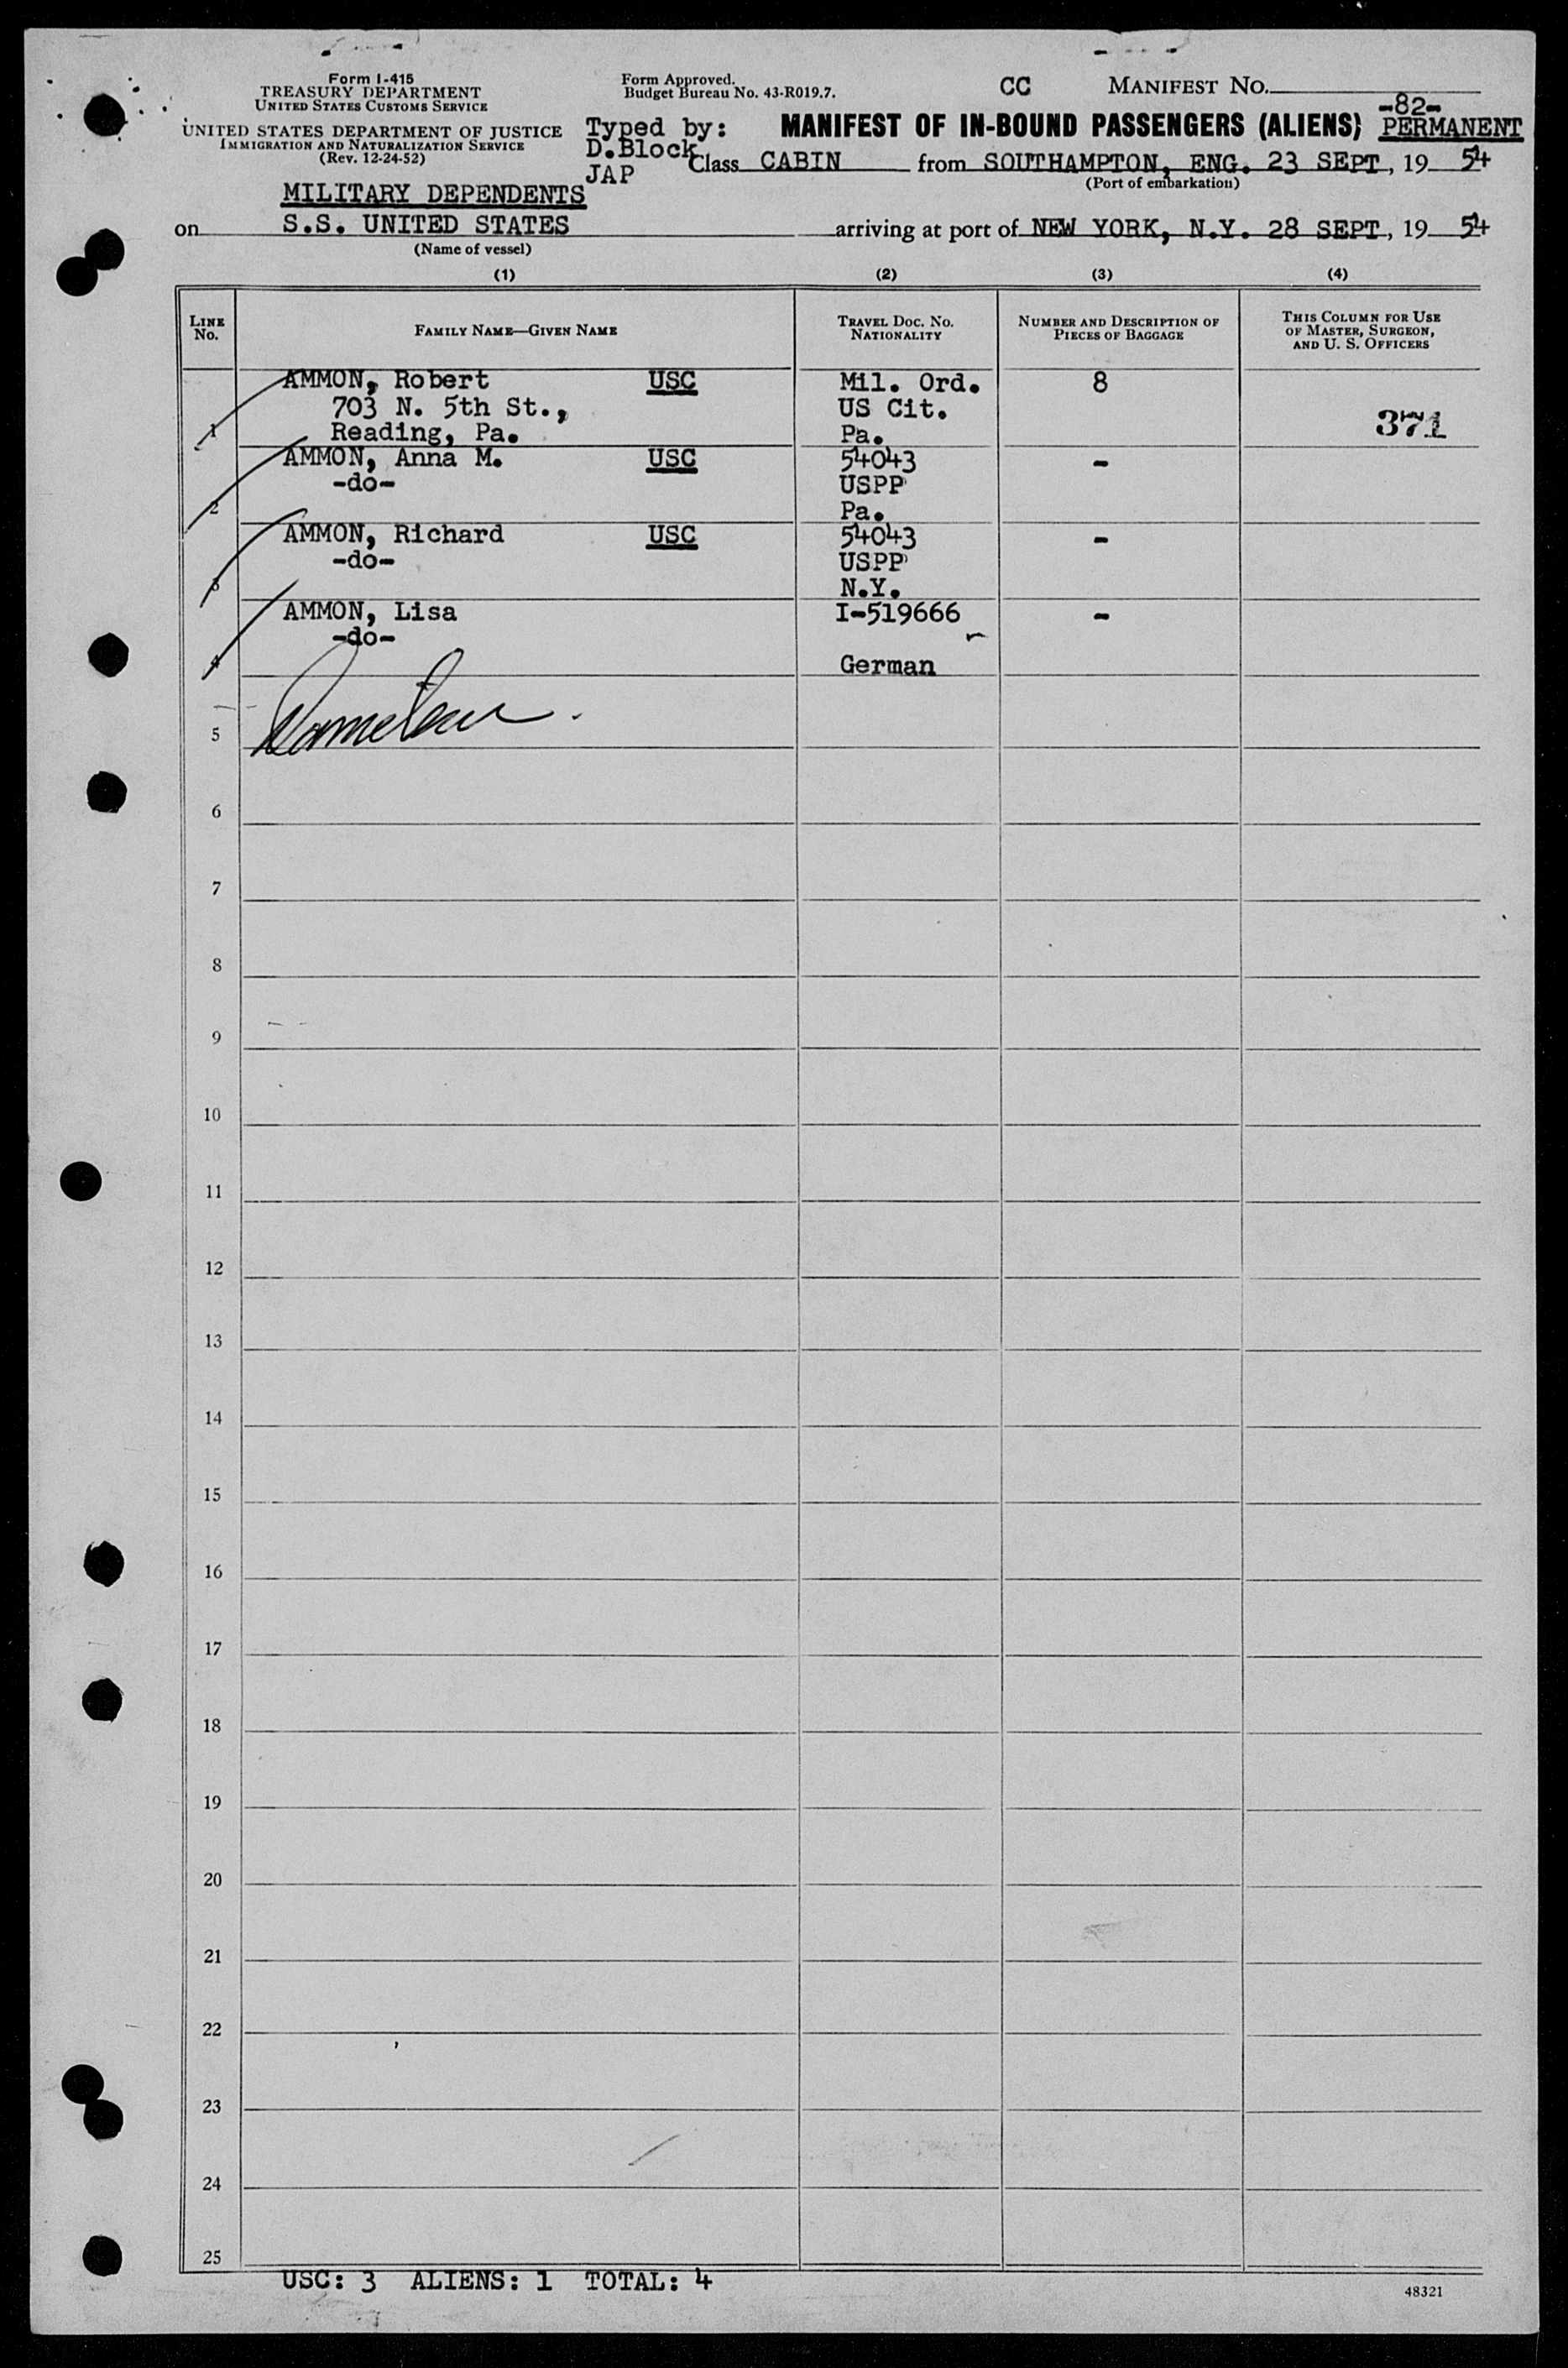 Form I-415
TREASURY DEPARTMENT
UNITED STATES CUSTOMS SERVICE
UNITED STATES DEPARTMENT OF JUSTICE
IMMIGRATION AND NATURALIZATION SERVICE
(Rev. 12-24-52)
Form Approved.
Budget Bureau No. 43-R019.7.
CC MANIFEST No.
-82-
Typed by: MANIFEST OF IN-BOUND PASSENGERS (ALIENS) PERMANENT
D.Block
JAP
Class CABIN from SOUTHAMPTON, ENG. 23 SEPT, 19 54
(Port of embarkation)
MILITARY DEPENDENTS
on S.S. UNITED STATES arriving at port of NEW YORK, N.Y. 28 SEPT, 19 54
(Name of vessel)
(1) (2) (3) (4)
LINE No. FAMILY NAME—GIVEN NAME TRAVEL DOC. NO. NATIONALITY NUMBER AND DESCRIPTION OF PIECES OF BAGGAGE THIS COLUMN FOR USE OF MASTER, SURGEON, AND U. S. OFFICERS
AMMON, Robert USC Mil. Ord. 8
703 N. 5th St., US Cit. 371
1 Reading, Pa. Pa.
AMMON, Anna M. USC 54043 -
-do- USPP
2 Pa.
AMMON, Richard USC 54043 -
-do- USPP
3 N.Y.
AMMON, Lisa I-519666 -
-do-
4 German
5
6
7
8
9
10
11
12
13
14
15
16
17
18
19
20
21
22
23
24
25
USC: 3 ALIENS: 1 TOTAL: 4
48321